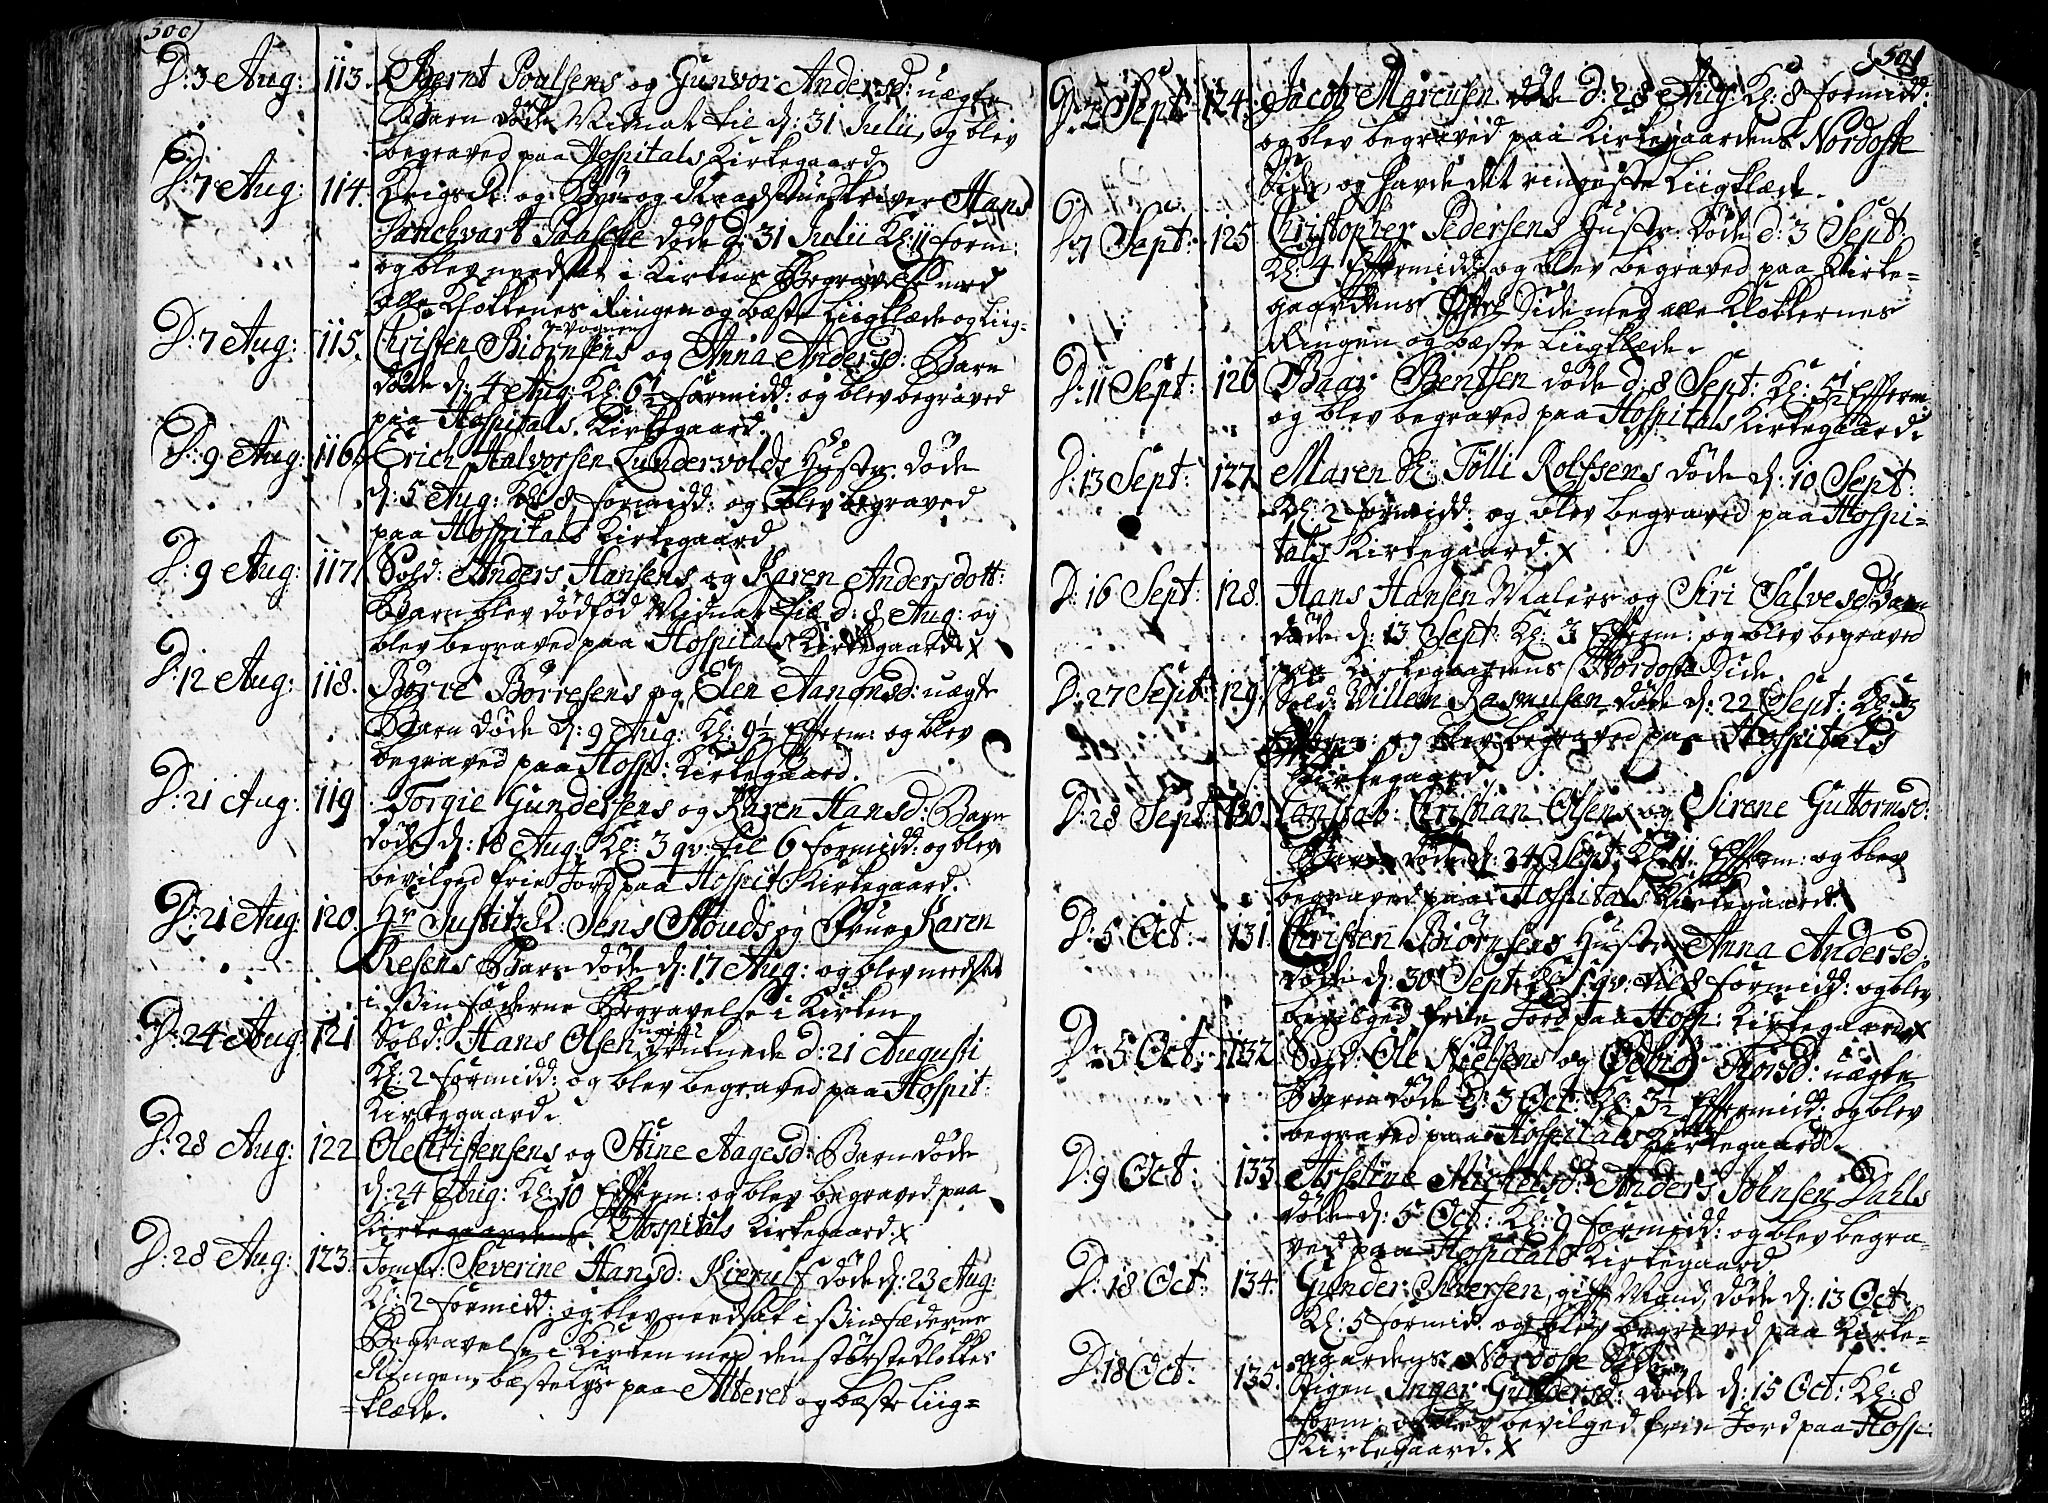 500
D: 3 Aug: 113. Bernt Poulsens og Gunvor Andersd: uægte
Barn døde Midnat til d: 31 Julii, og blev
begraved paa Hospitals Kirkegaard.
D: 7 Aug: 114. Krigsr: og Bye og Raadstueskriver Hans
Paasche døde d: 31 Julii Kl: 11 form:
og blev nedsat i Kirkens Begravelse med
alle Klokkernes Ringen og bæste Liigklæde og Liig-
vognen
D: 7 Aug: 115. Christen Biørnsens og Anna Andersd: Barn
døde d: 4 Aug: Kl: 6½ formidd: og blev begraved
paa Hospitals Kirkegaard.
D: 9 Aug: 116. Erich Halvorsen Lundervolds Hustr: døde
d: 5 Aug: Kl: 8 formidd: og blev begraved
paa Hospitals Kirkegaard
D: 9 Aug: 117. Sold: Anders Hansens og Karen Andersdott:
Barn blev dødfød Midnat til d: 8 Aug: og
blev begraved paa Hospitals Kirkegaard. X
D: 12 Aug: 118. Børre Børresens og Elen Aanonsd: uægte
Barn døde d: 9 Aug: Kl: 9½ Efterm: og blev
begraved paa Hosp: Kirkegaard.
D: 21 Aug: 119 Torgie Gundersens og Karen Hansd: Barn
døde d: 18 Aug: Kl: 3 qv: til 6 formidd: og blev
bevilged frie Jord paa Hospit: Kirkegaard.
D: 21 Aug: 120. Hr Justitz R: Jens Stouds og Frue Karen
Resens Barn døde d: 17 Aug: og blev nedsat
i sin fæderne Begravelse i Kirken
D: 24 Aug: 121 Sold: Hans Olsen ugift druknede d: 21 Augusti
Kl: 2 formidd: og blev begraved paa Hospit:
Kirkegaard.
D: 28 Aug: 122 Ole Christensens og Stine Aagesd: Barn døde
d: 24 Aug: Kl: 10 Efterm: og blev begraved paa
Kirkegaardens Hospitals Kirkegaard. X
D: 28 Aug: 123. Jomfr: Severine Hansd: Kierulf døde d: 23 Aug:
Kl: 2 formidd: og blev nedsat i sin fæderne
Begravelse i Kirken med den største Klokkes
Ringen, bæste Lys paa Alteret og bæste Liig-
=klæde.
501
D: 2 Sept: 124. Jacob Marcusen døde d: 28 Aug: Kl: 8 formidd:
og blev begraved paa Kirkegaardens Nordoste
Side, og havde det ringeste Liigklæde.
D: 7 Sept: 125. Christopher Pedersens Hustr: døde d: 3 Sept:
Kl: 4 Eftermidd: og blev begraved paa Kirke-
gaardens Side med alle Klokkernes
Ringen og bæste Liigklæde.
D: 11 Sept: 126 Baar Bentsen døde d: 8 Sept: Kl: 5½ Efterm:
og blev begraved paa Hospitals Kirkegaard.
D: 13 Sept: 127. Maren Tølli Rolfsens døde d: 10 Sept:
Kl: 2 formidd: og blev begraved paa Hospi-
tals Kirkegaard. X
D: 16 Sept: 128. Hans Hansen Malers og Siri Salvesd: Barn
døde d: 13 Sept: Kl: 3 Efterm: og blev begraved
paa Kirkegaardens Nordoste Side.
D: 27 Sept: 129. Sold: Willem Rasmusen døde d: 22 Sept: Kl: 3
Efterm: og blev begraved paa Hospitals
Kirkegaard.
D: 28 Sept: 130. Constab: Christian Olsens og Sirene Guttormsd:
Barn døde d: 24 Sept: Kl: 11 Efterm: og blev
begraved paa Hospitals Kirkegaard.
D: 5 Oct: 131. Christen Biørnsens Hustr: Anna Andersd:
døde d: 30 Sept: Kl: 1 qv: til 8 formidd: og blev
bevilged frie Jord paa Hosp: Kirkegaard X
D: 5 Oct: 132. Sold: Ole Nielsens og Torsd: uægte
Barn døde d: 3 Oct: Kl: 3½ Eftermidd: og blev
begraved paa Hospitals Kirkegaard.
D: 9 Oct: 133. Aseline Michelsd: Anders Johnsen Dahls
døde d: 5 Oct: Kl: 9 formidd: og blev begra-
ved paa Hospitals Kirkegaard
D: 18 Oct: 134. Gunder Iversen, gift Mand, døde d: 13 Oct:
Kl: 5 formid: og blev begraved paa Kirke-
gaardens Nordoste Side.
D: 18 Oct: 135. Pigen Inger Gundersd: døde d: 15 Oct: Kl: 8
form: og blev bevilged frie Jord paa Hospi:
Kirkegaard. X